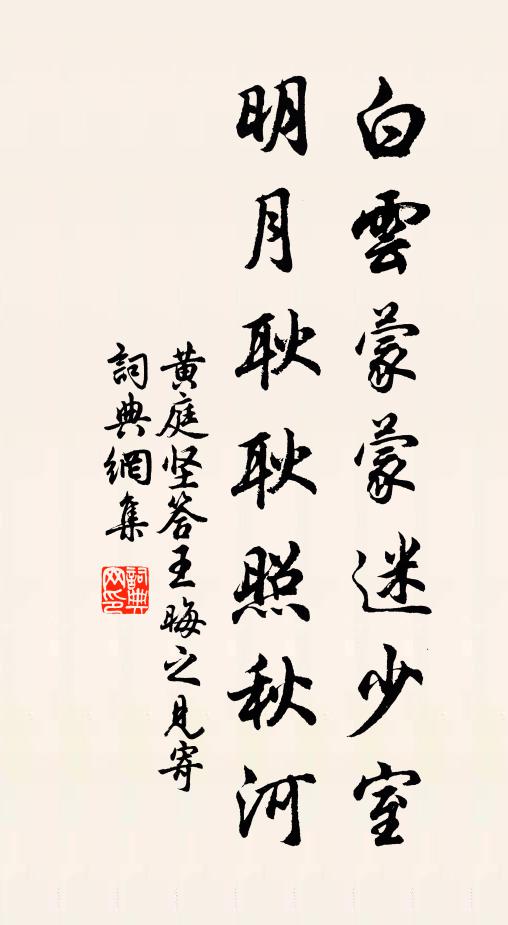 白雲蒙蒙迷少室
明月耿耿照秋河
黄庭坚答王晦之見寄
詞典網集
詞典
网印